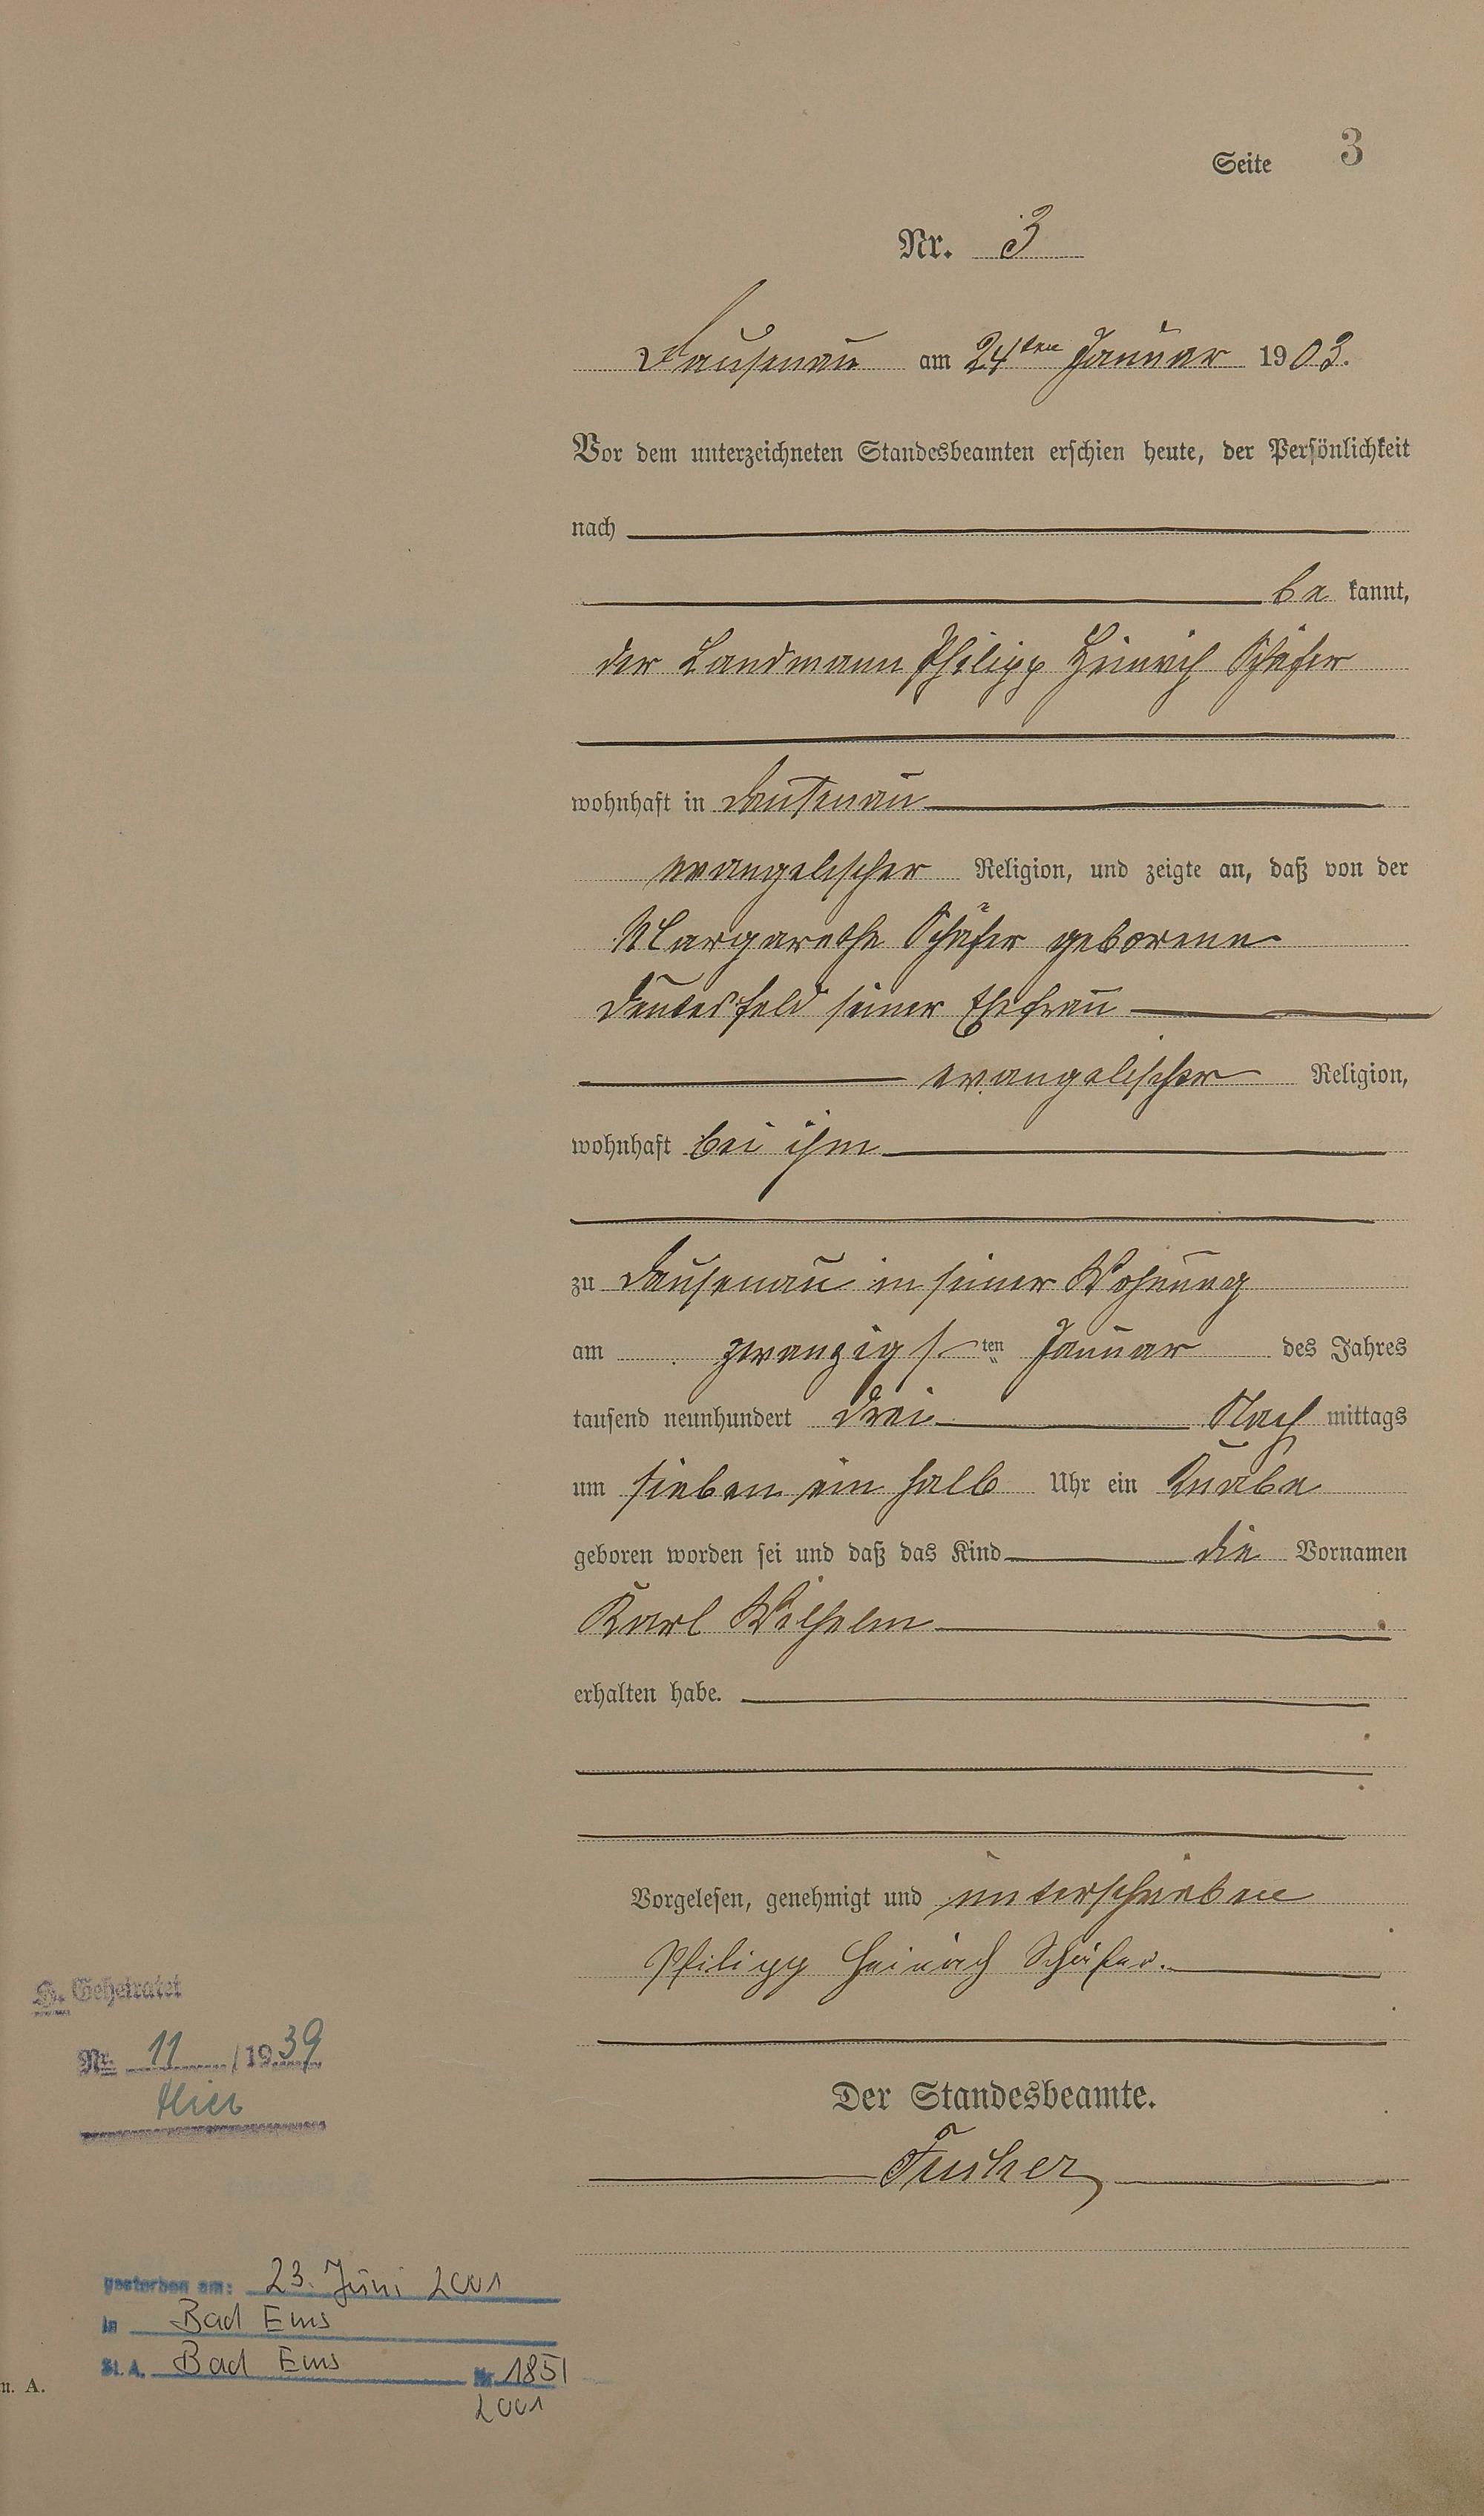 Seite 3
Nr. 3
Dausenau am 24ten Januar 1903.
Vor dem unterzeichneten Standesbeamten erschien heute, der Persönlichkeit
nach
be kannt,
der Landmann Philipp Heinrich Schäfer
wohnhaft in Dausenau
evangelischer Religion, und zeigte an, daß von der
Margarethe Schäfer geborene
seiner Ehefrau
evangelischer Religion,
wohnhaft bei ihm
zu Dausenau in seiner Wohnung
am zwanzigsten Januar des Jahres
tausend neunhundert drei Nach mittags
um sieben ein halb Uhr ein Knabe
geboren worden sei und daß das Kind die Vornamen
Karl Wilhelm
erhalten habe.
Vorgelesen, genehmigt und unterschrieben
Philipp Heinrich Schäfer.
H. Geheiratet
Nr. 11 / 1939
hier
Der Standesbeamte.
gestorben am: 23. Juni 2001
in Bad Ems
St. A. Bad Ems Nr. 185/
2001
n. A.